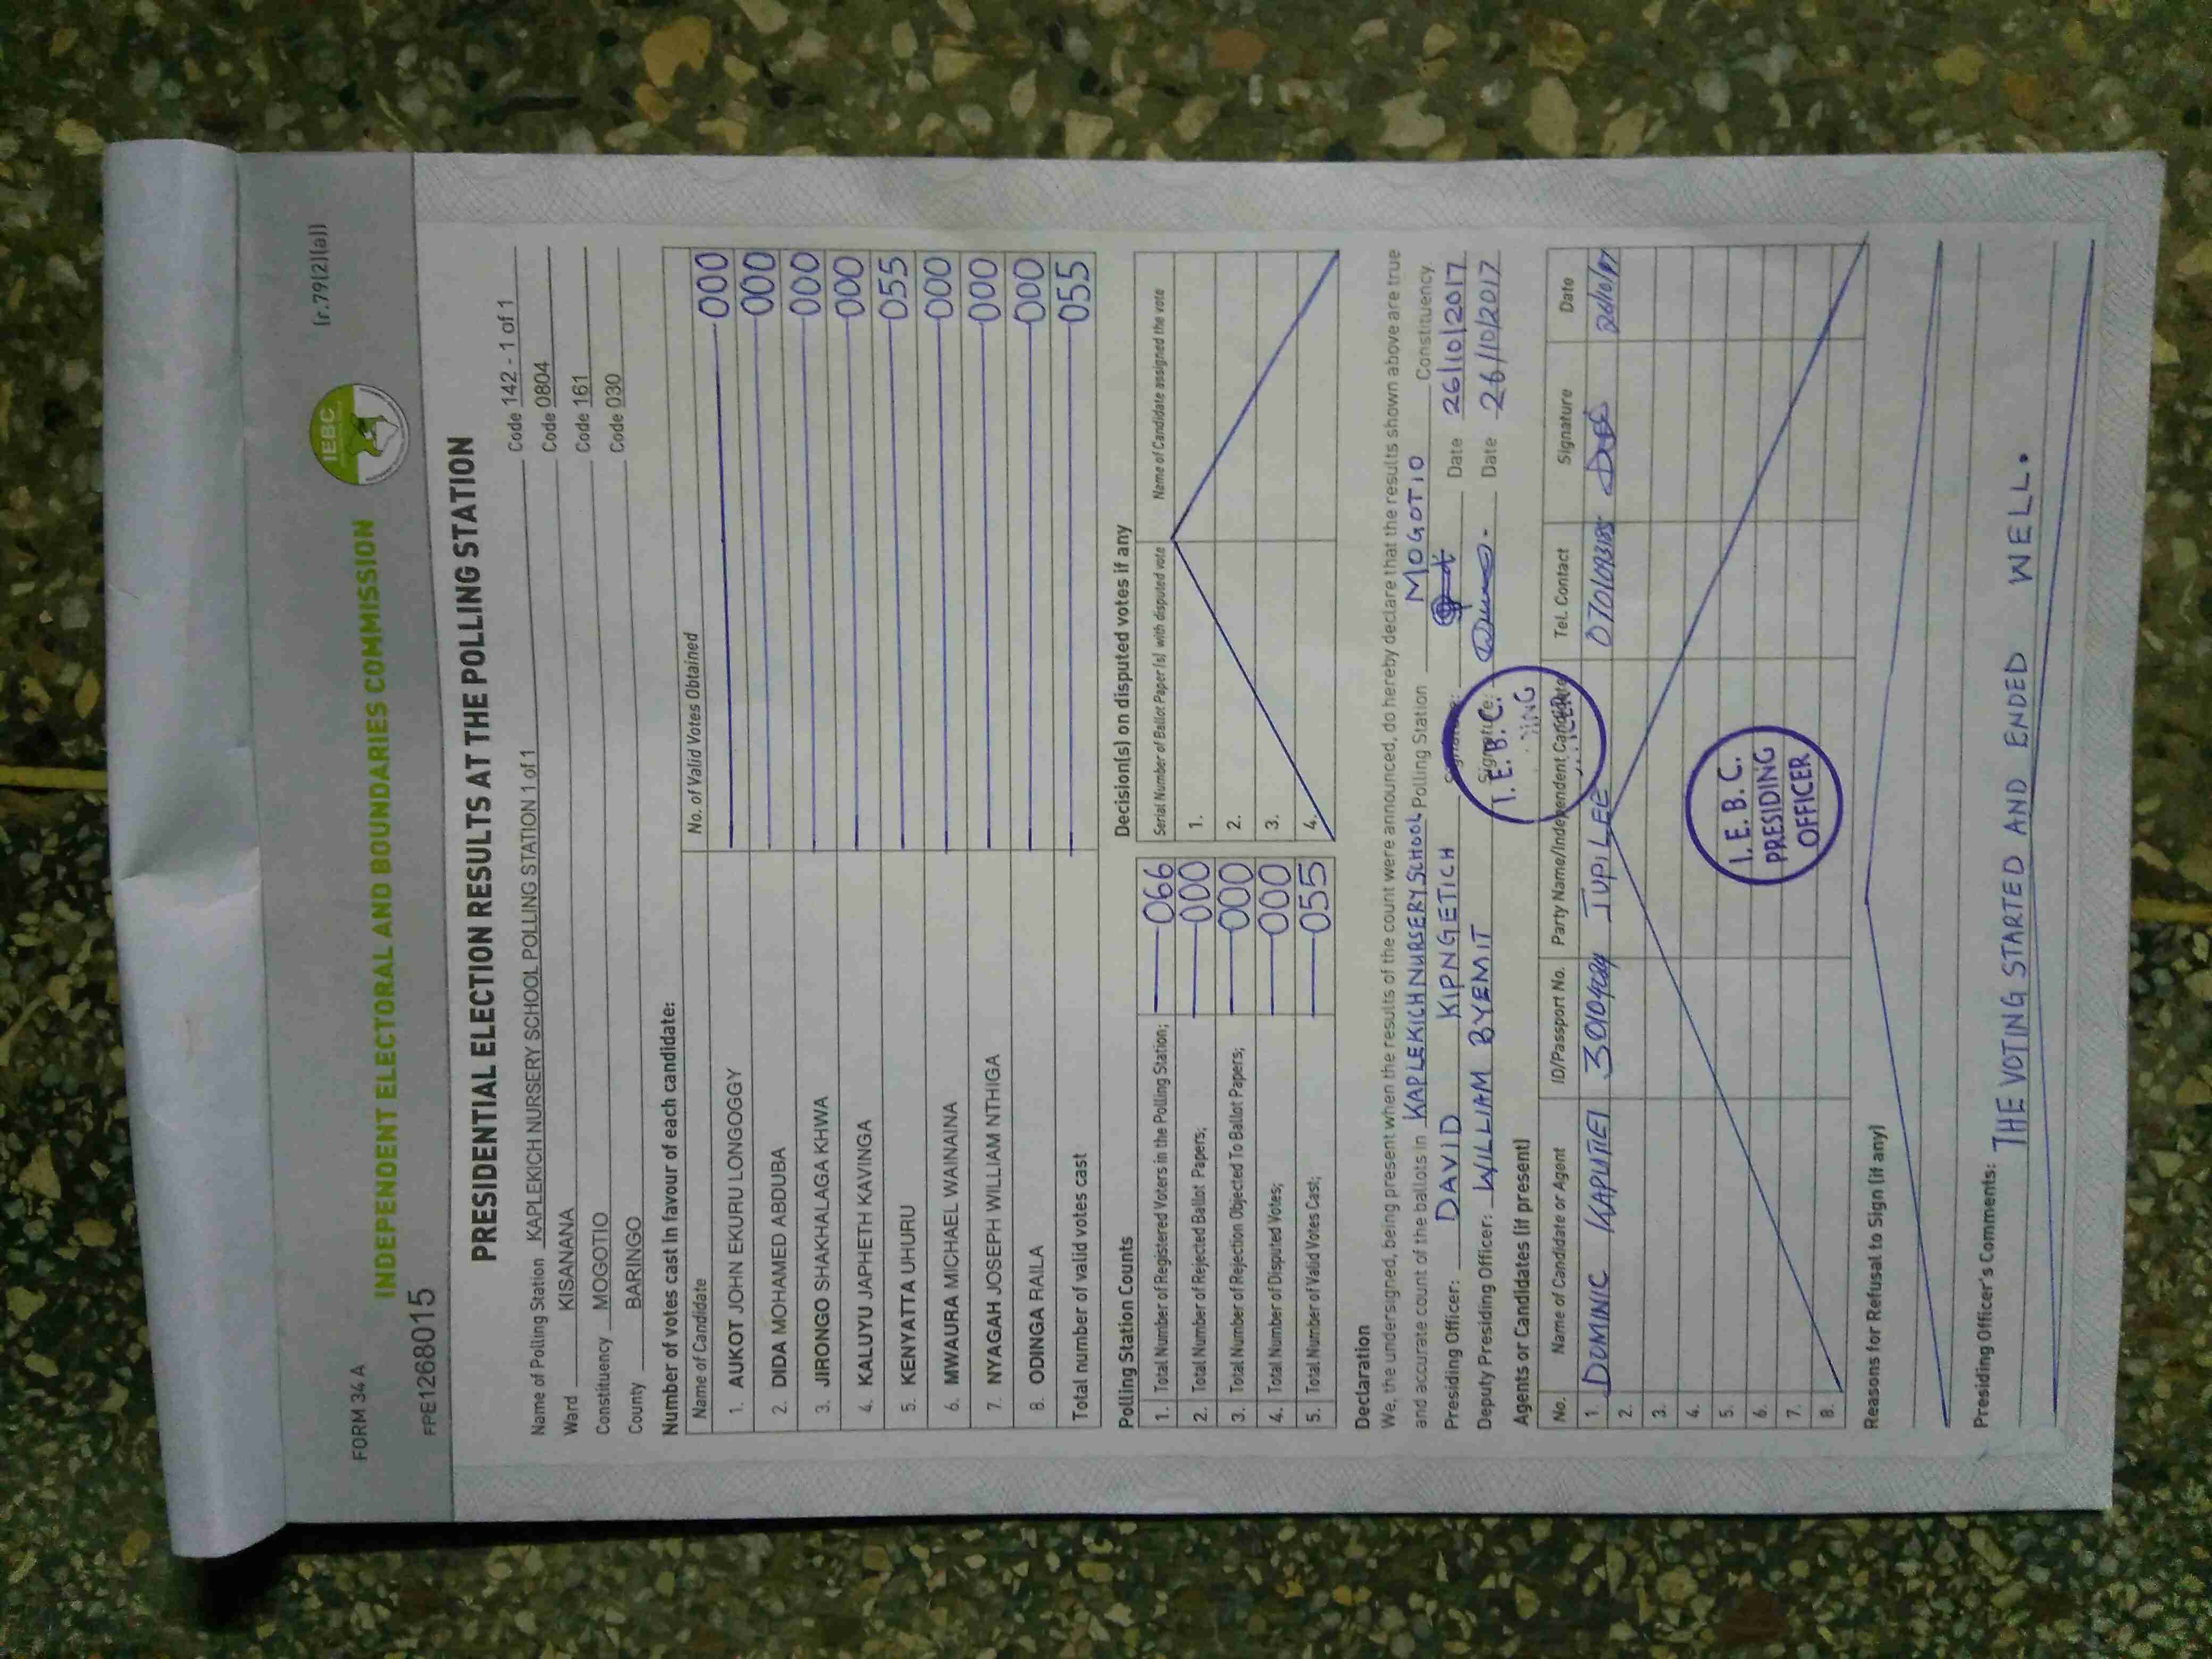 FORM 34 A
(r.79(2)(a))
INDEPENDENT ELECTORAL AND BOUNDARIES COMMISSION
IEBC
FPE1268015
PRESIDENTIAL ELECTION RESULTS AT THE POLLING STATION
Name of Polling Station KAPLEKICH NURSERY SCHOOL POLLING STATION 1 of 1 Code 142 - 1 of 1
Ward KISANANA Code 0804
Constituency MOGOTIO Code 161
County BARINGO Code 030
Number of votes cast in favour of each candidate:
Name of Candidate No. of Valid Votes Obtained
1. AUKOT JOHN EKURU LONGOGGY 000
2. DIDA MOHAMED ABDUBA 000
3. JIRONGO SHAKHALAGA KHWA 000
4. KALUYU JAPHETH KAVINGA 000
5. KENYATTA UHURU 055
6. MWAURA MICHAEL WAINAINA 000
7. NYAGAH JOSEPH WILLIAM NTHIGA 000
8. ODINGA RAILA 000
Total number of valid votes cast 055
Polling Station Counts
1. Total Number of Registered Voters in the Polling Station; 066
2. Total Number of Rejected Ballot Papers; 000
3. Total Number of Rejection Objected To Ballot Papers; 000
4. Total Number of Disputed Votes; 000
5. Total Number of Valid Votes Cast; 055
Decision(s) on disputed votes if any
Serial Number of Ballot Paper (s) with disputed vote Name of Candidate assigned the vote
1.
2.
3.
4.
Declaration
We, the undersigned, being present when the results of the count were announced, do hereby declare that the results shown above are true
and accurate count of the ballots in KAPLEKICH NURSERY SCHOOL Polling Station MOGOTIO Constituency.
Presiding Officer: DAVID KIPNGETICH Signature: Date 26/10/2017
Deputy Presiding Officer: WILLIAM BYEMIT Signature: Date 26/10/2017
I.E.B.C.
Agents or Candidates (if present)
No. Name of Candidate or Agent ID/Passport No. Party Name/Independent Candidate Tel. Contact Signature Date
1. DOMINIC KAPUTIEI JUPILEE
2.
3.
4.
5.
6.
7.
8.
I.E.B.C.
PRESIDING
OFFICER
Reasons for Refusal to Sign (if any)
Presiding Officer's Comments: THE VOTING STARTED AND ENDED WELL.